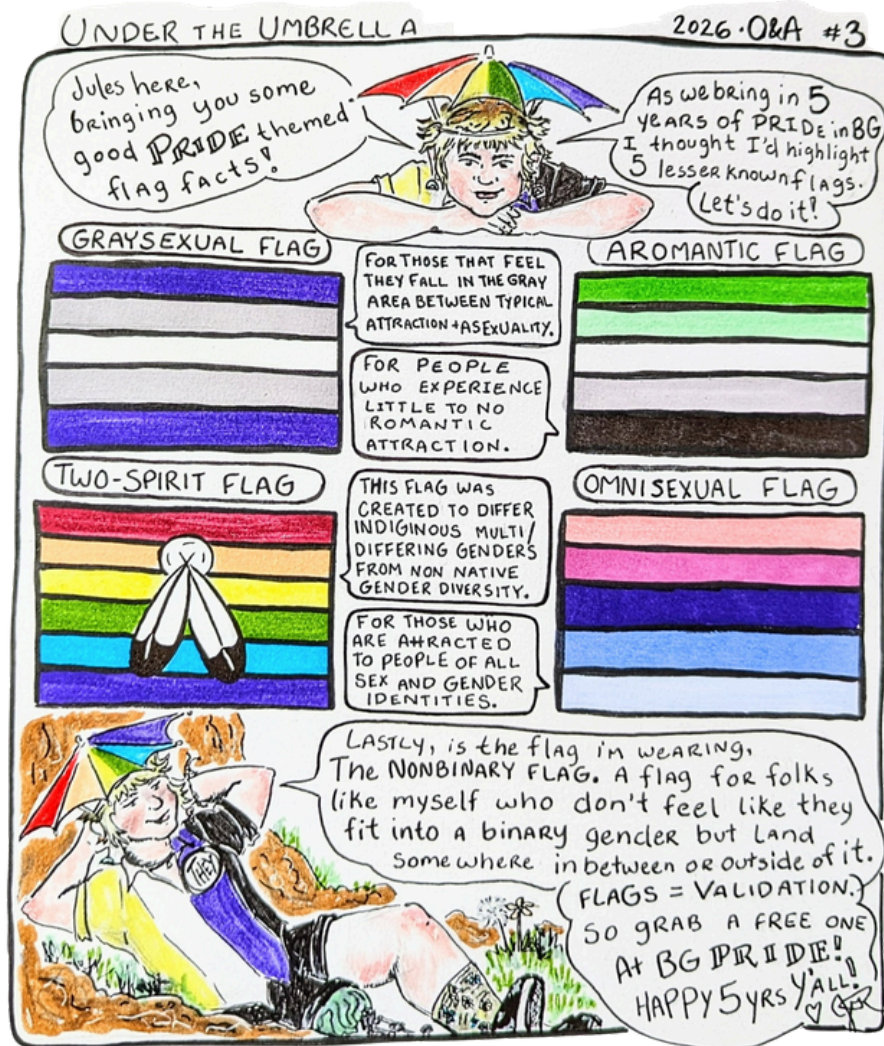 UNDER THE UMBRELLA
2026 • Q&A #3
Jules here,
bringing you some
good PRIDE themed
flag facts!
As we bring in 5
years of PRIDE in BG
I thought I'd highlight
5 lesser known flags.
Let's do it!
GRAYSEXUAL FLAG
FOR THOSE THAT FEEL
THEY FALL IN THE GRAY
AREA BETWEEN TYPICAL
ATTRACTION + ASEXUALITY.
AROMANTIC FLAG
FOR PEOPLE
WHO EXPERIENCE
LITTLE TO NO
ROMANTIC
ATTRACTION.
TWO-SPIRIT FLAG
THIS FLAG WAS
CREATED TO DIFFER
INDIGINOUS MULTI/
DIFFERING GENDERS
FROM NON NATIVE
GENDER DIVERSITY.
OMNISEXUAL FLAG
FOR THOSE WHO
ARE ATTRACTED
TO PEOPLE OF ALL
SEX AND GENDER
IDENTITIES.
LASTLY, is the flag i'm wearing,
The NONBINARY FLAG. A flag for folks
like myself who don't feel like they
fit into a binary gender but land
somewhere in between or outside of it.
FLAGS = VALIDATION.
SO GRAB A FREE ONE
At BG PRIDE!
HAPPY 5 YRS Y'ALL!
THEY